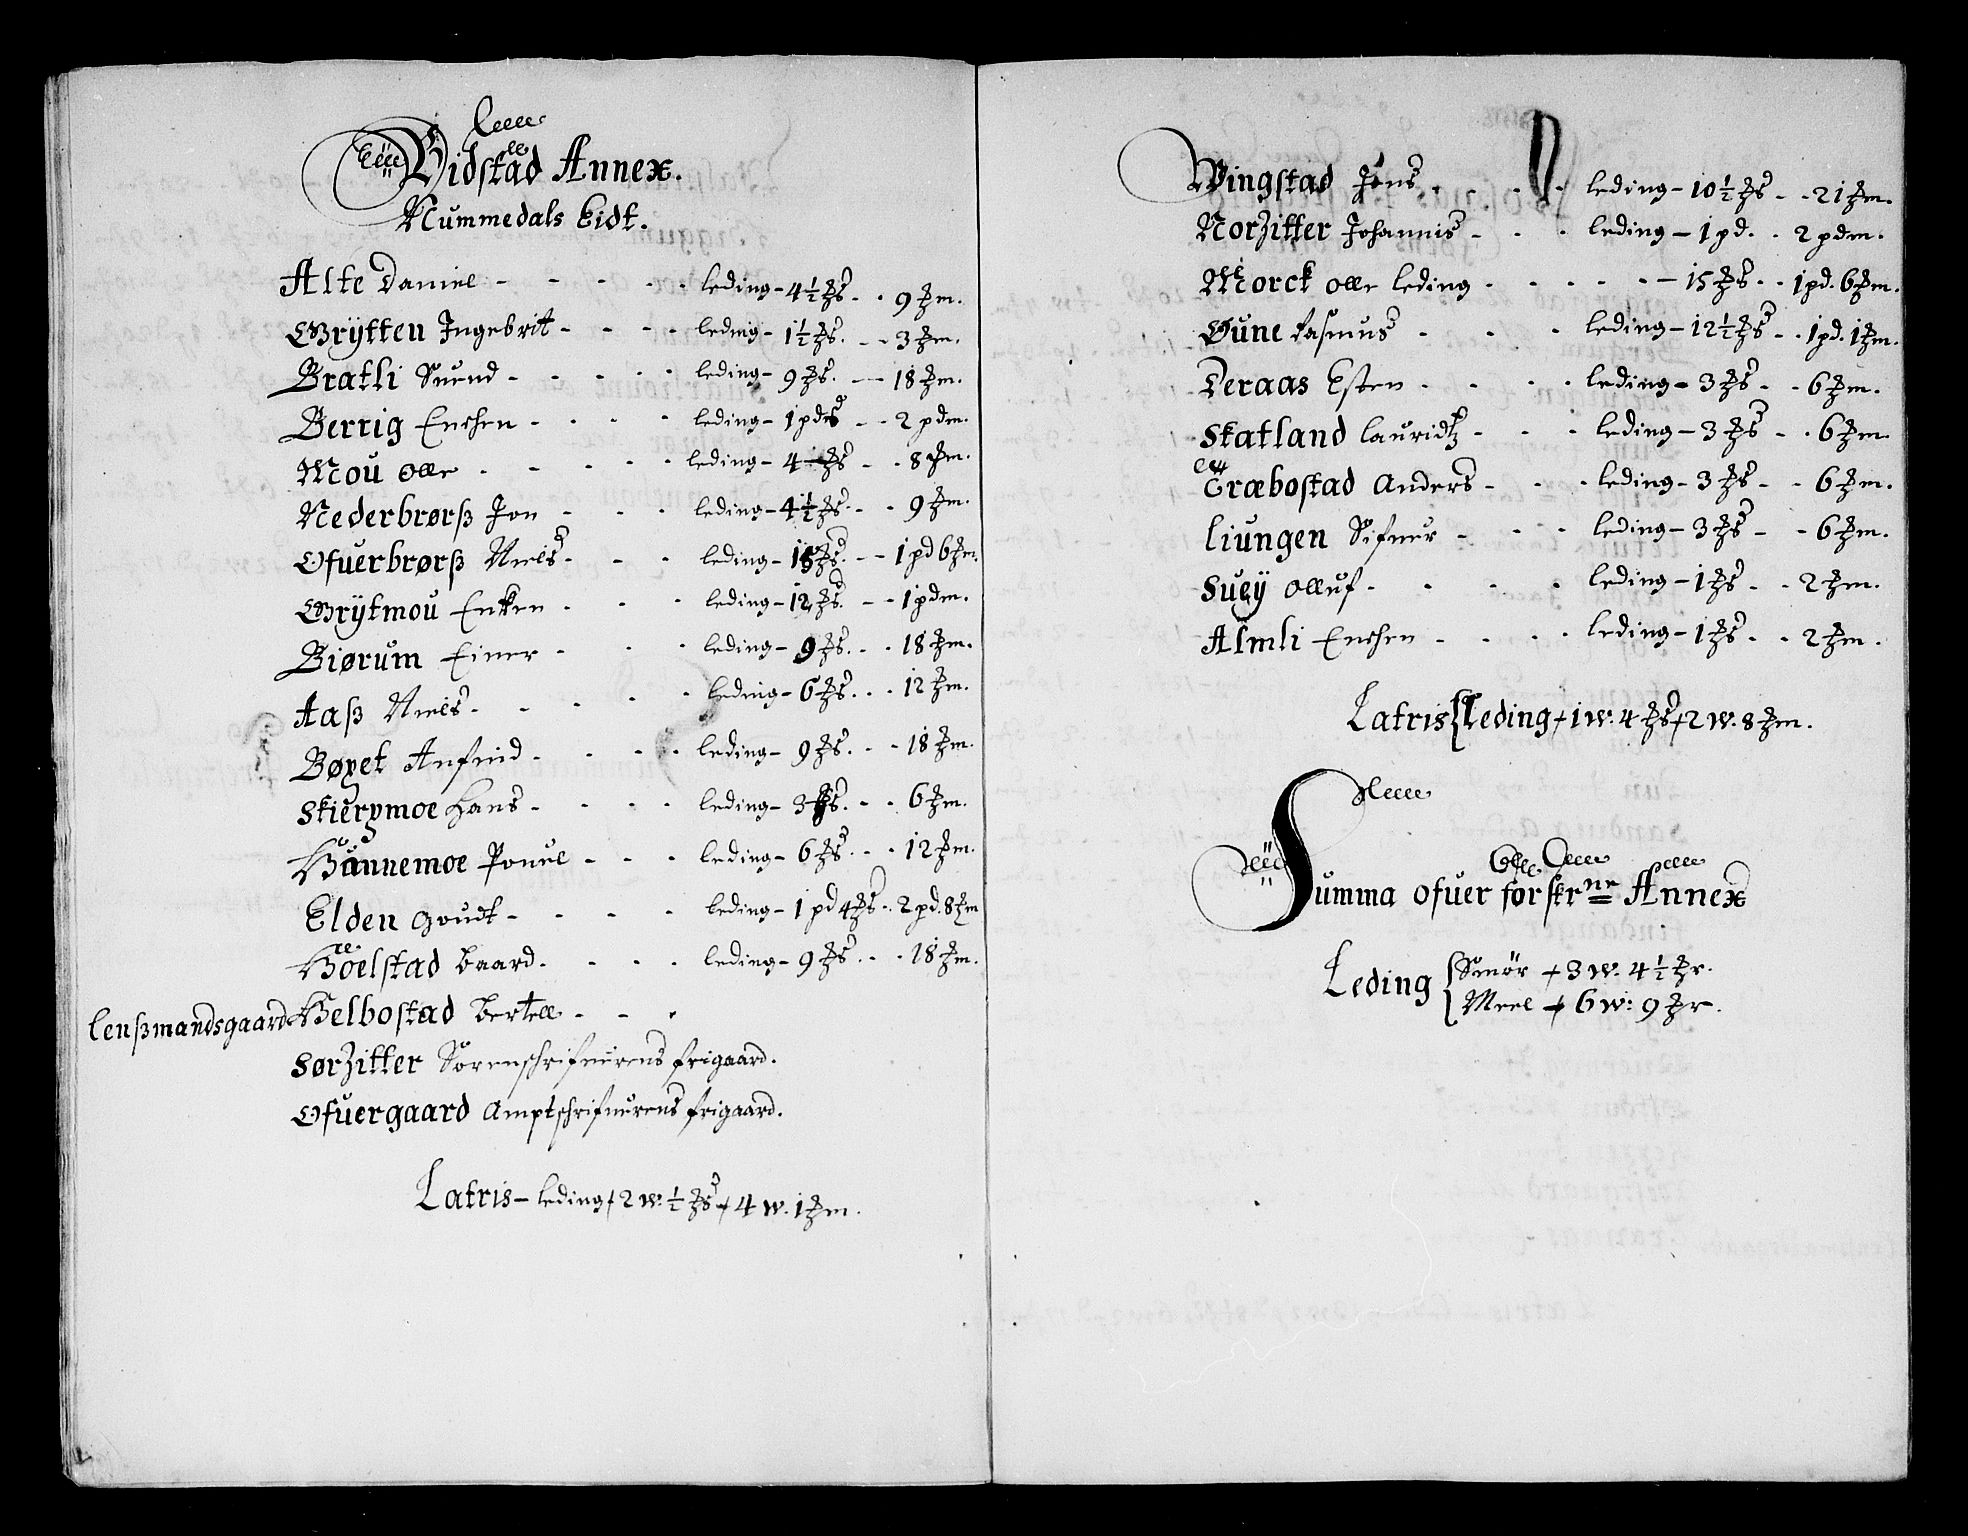 Bidstad Annex.
Nummedals Eidt.
Alte Daniel - - - - - leding - 4½ ℔s - - 9 ℔m.
Grÿtten Ingebrit - - - - leding - 1½ ℔s. - - 3 ℔m.
Bratli Suend - - - - - leding - 9 ℔s. - - 18 ℔m.
Berrig Enchen - - - - leding - 1 pds - - 2 pdm.
Mou Olle - - - - - leding - 4 ℔s - - 8 ℔m.
Nederbrørß Jon - - - leding - 4½ ℔s. - - 9 ℔m.
Ofuerbrørß Niels - - - leding - 15 ℔s. - - 1 pd 6 ℔m.
Grÿtmou Enken - - - leding - 12 ℔s. - - 1 pdm.
Biørum Einer - - - leding - 9 ℔s. - - 18 ℔m.
Aaß Niels - - - - - leding - 6 ℔s. - - 12 ℔m.
Bøxet Anfind - - - - leding - 9 ℔s. - - 18 ℔m.
Skierpmoe Hans - - - - leding - 3 ℔s. - - 6 ℔m.
Hünnemoe Pouel - - - leding - 6 ℔s. - - 12 ℔m.
Elden Goudt - - - - leding - 1 pd 4 ℔s - 2 pd. 8 ℔m
Hoelstad Baard - - - - leding - 9 ℔s. - - 18 ℔m.
Lenßmandsgaard Helbostad Bertell - - -
Sørzitter Sorenschrifuerens frigaard.
Ofuergaard Amptschrifuerens frigaard.
Latris - leding + 2 w. ½ ℔s + 4 w. 1 ℔m.
Wingstad Jens - - - - leding - 10½ ℔s - - 21 ℔m.
Norzitter Johannis - - - leding - 1 pd. - - 2 pdm.
Morck Olle leding - - - - - - 15 ℔s - - 1 pd. 6 ℔m.
Oune Rasmus - - - leding - 12½ ℔s - - 1 pd. 1 ℔m.
Deraas Esten - - - - leding - 3 ℔s - - 6 ℔m.
Skatland Lauridtz - - - leding - 3 ℔s - - 6 ℔m.
Træbostad Anders - - - leding - 3 ℔s - - 6 ℔m.
Liungen Sifuer - - - leding - 3 ℔s - - 6 ℔m.
Sueÿ Olluf - - - - leding - 1 ℔s - - 2 ℔m.
Almli Enchen - - - - leding - 1 ℔s - - 2 ℔m.
Latris Leding + 1 w. 4 ℔s + 2 w. 8 ℔m.
Summa ofuer forskrne Annex
Leding Smör + 3 w. 4½ ℔r.
Meel + 6 w: 9 ℔r.